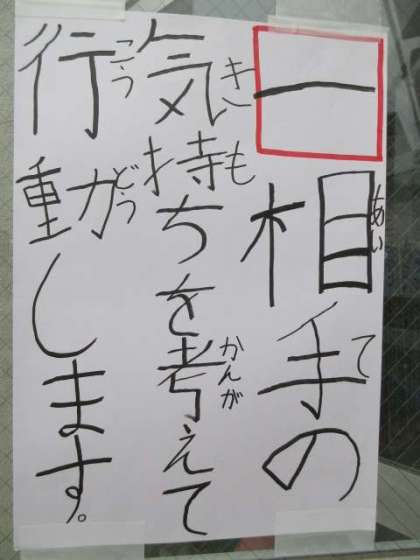 一相手の
気持ちを考えて
行動します。
あい
て
きい
も
かんが
こう
どう